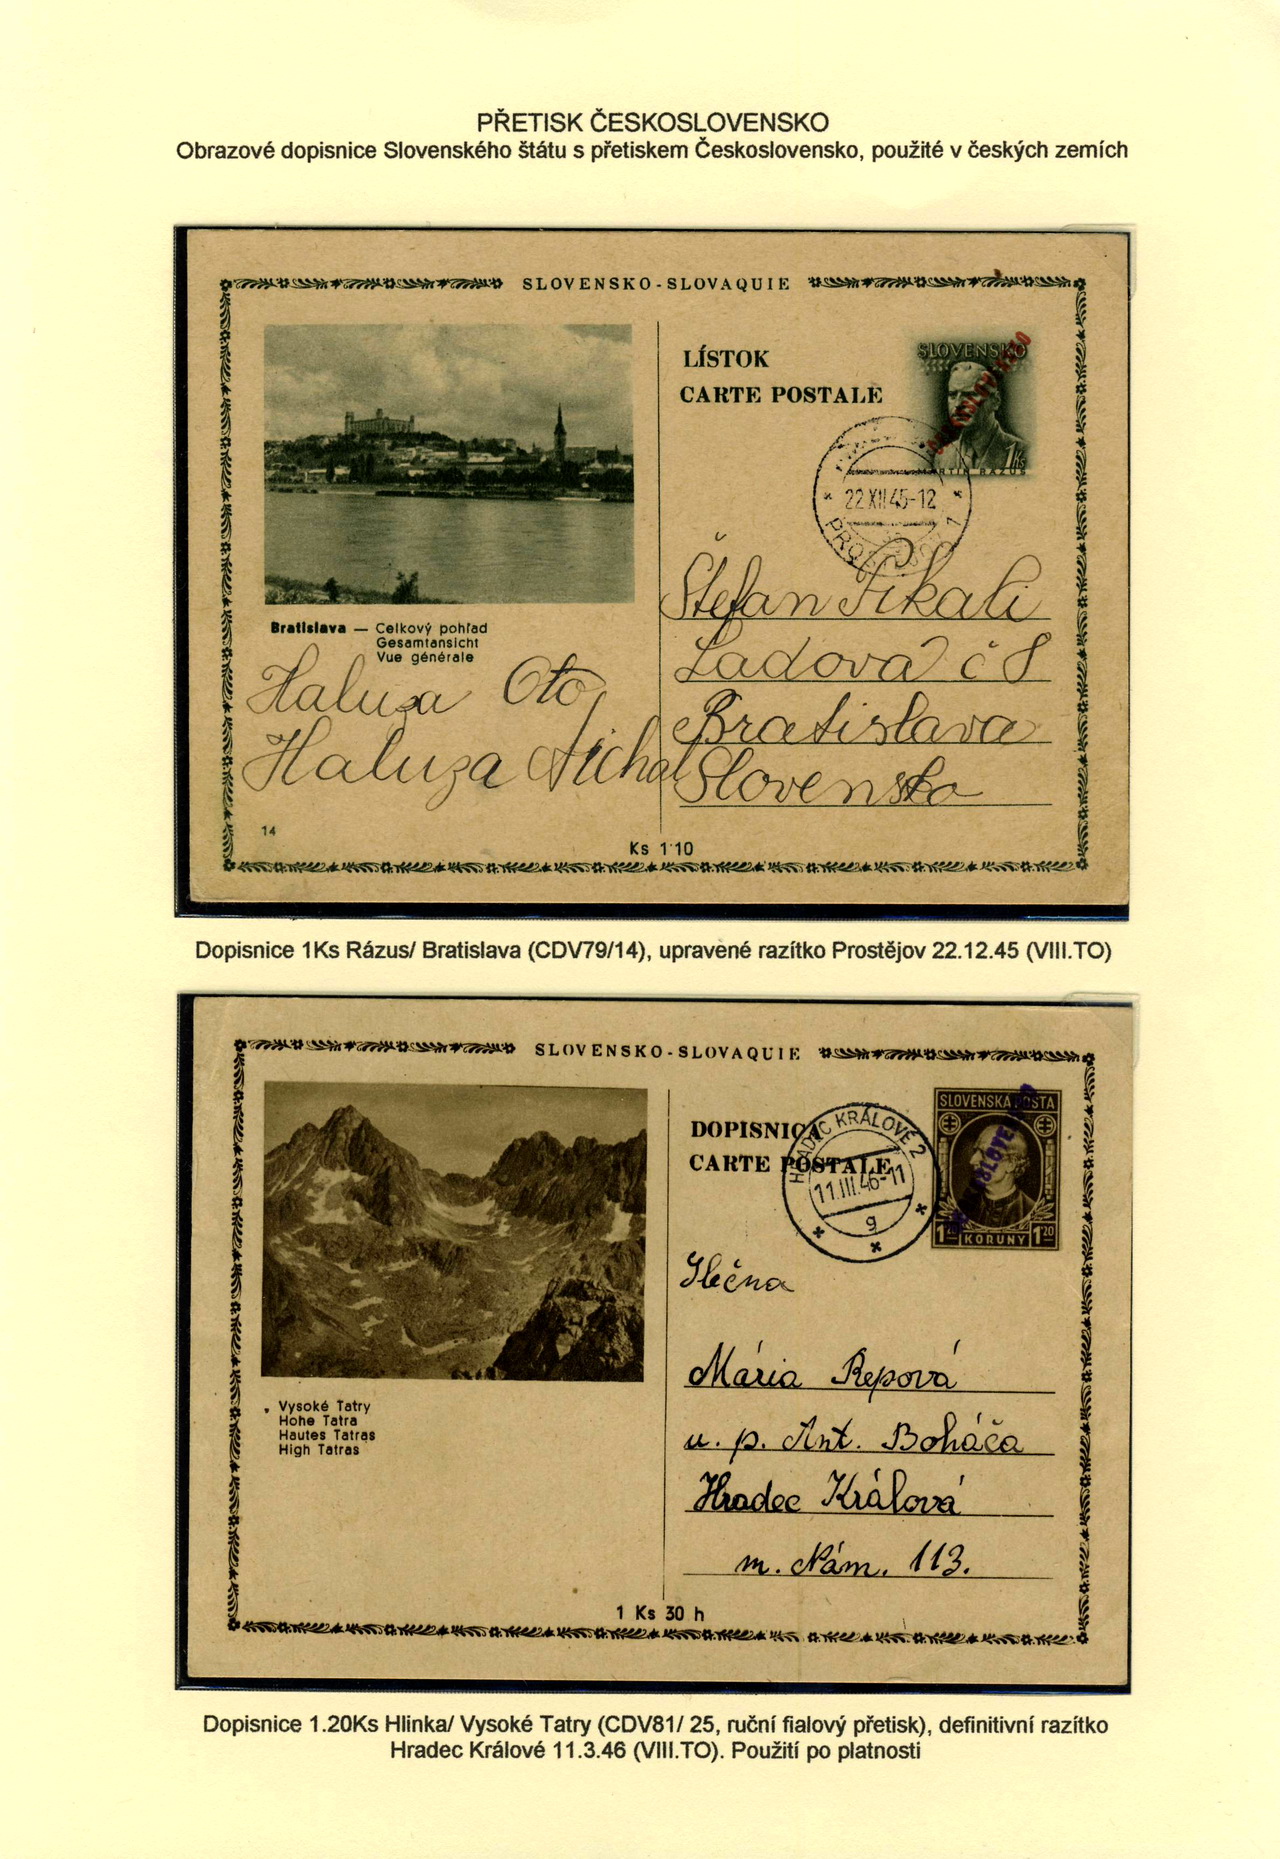 PŘETISK ČESKOSLOVENSKO
Obrazové dopisnice Slovenského štátu s přetiskem Československo, použité v českých zemích
SLOVENSKO - SLOVAQUIE
LÍSTOK
CARTE POSTALE
SLOVENSKO
1 Ks
MARTIN RÁZUS
22 XII 45-12
Bratislava — Celkový pohľad
Gesamtansicht
Vue générale
Haluza Oto
Haluza
Štefan
Ladova č 8
Bratislava
Slovensko
14
Ks 1·10
Dopisnice 1Ks Rázus/ Bratislava (CDV79/14), upravené razítko Prostějov 22.12.45 (VIII.TO)
SLOVENSKO - SLOVAQUIE
DOPISNICA
CARTE POSTALE
HRADEC KRÁLOVÉ 2
11.III.46-11
g
SLOVENSKÁ POŠTA
1·20 KORUNY 1·20
Slečna
Mária Repová
u. p. Ant. Boháča
Hradec Králová
m. Nám. 113.
Vysoké Tatry
Hohe Tatra
Hautes Tatras
High Tatras
1 Ks 30 h
Dopisnice 1.20Ks Hlinka/ Vysoké Tatry (CDV81/ 25, ruční fialový přetisk), definitivní razítko
Hradec Králové 11.3.46 (VIII.TO). Použití po platnosti